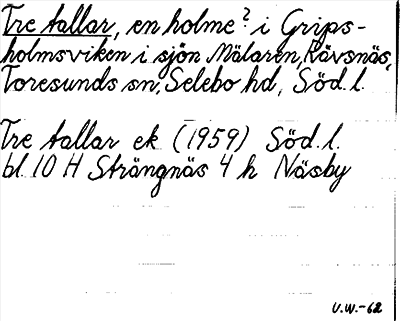 Tre tallar, en holme? i Grips-
holmsviken i sjön Mälaren, Rävsnäs,
Toresunds sn, Selebo hd, Söd. l.
Tre tallar ek (1959) Söd. l.
bl. 10 H Strängnäs 4 h Näsby
U.W.-62